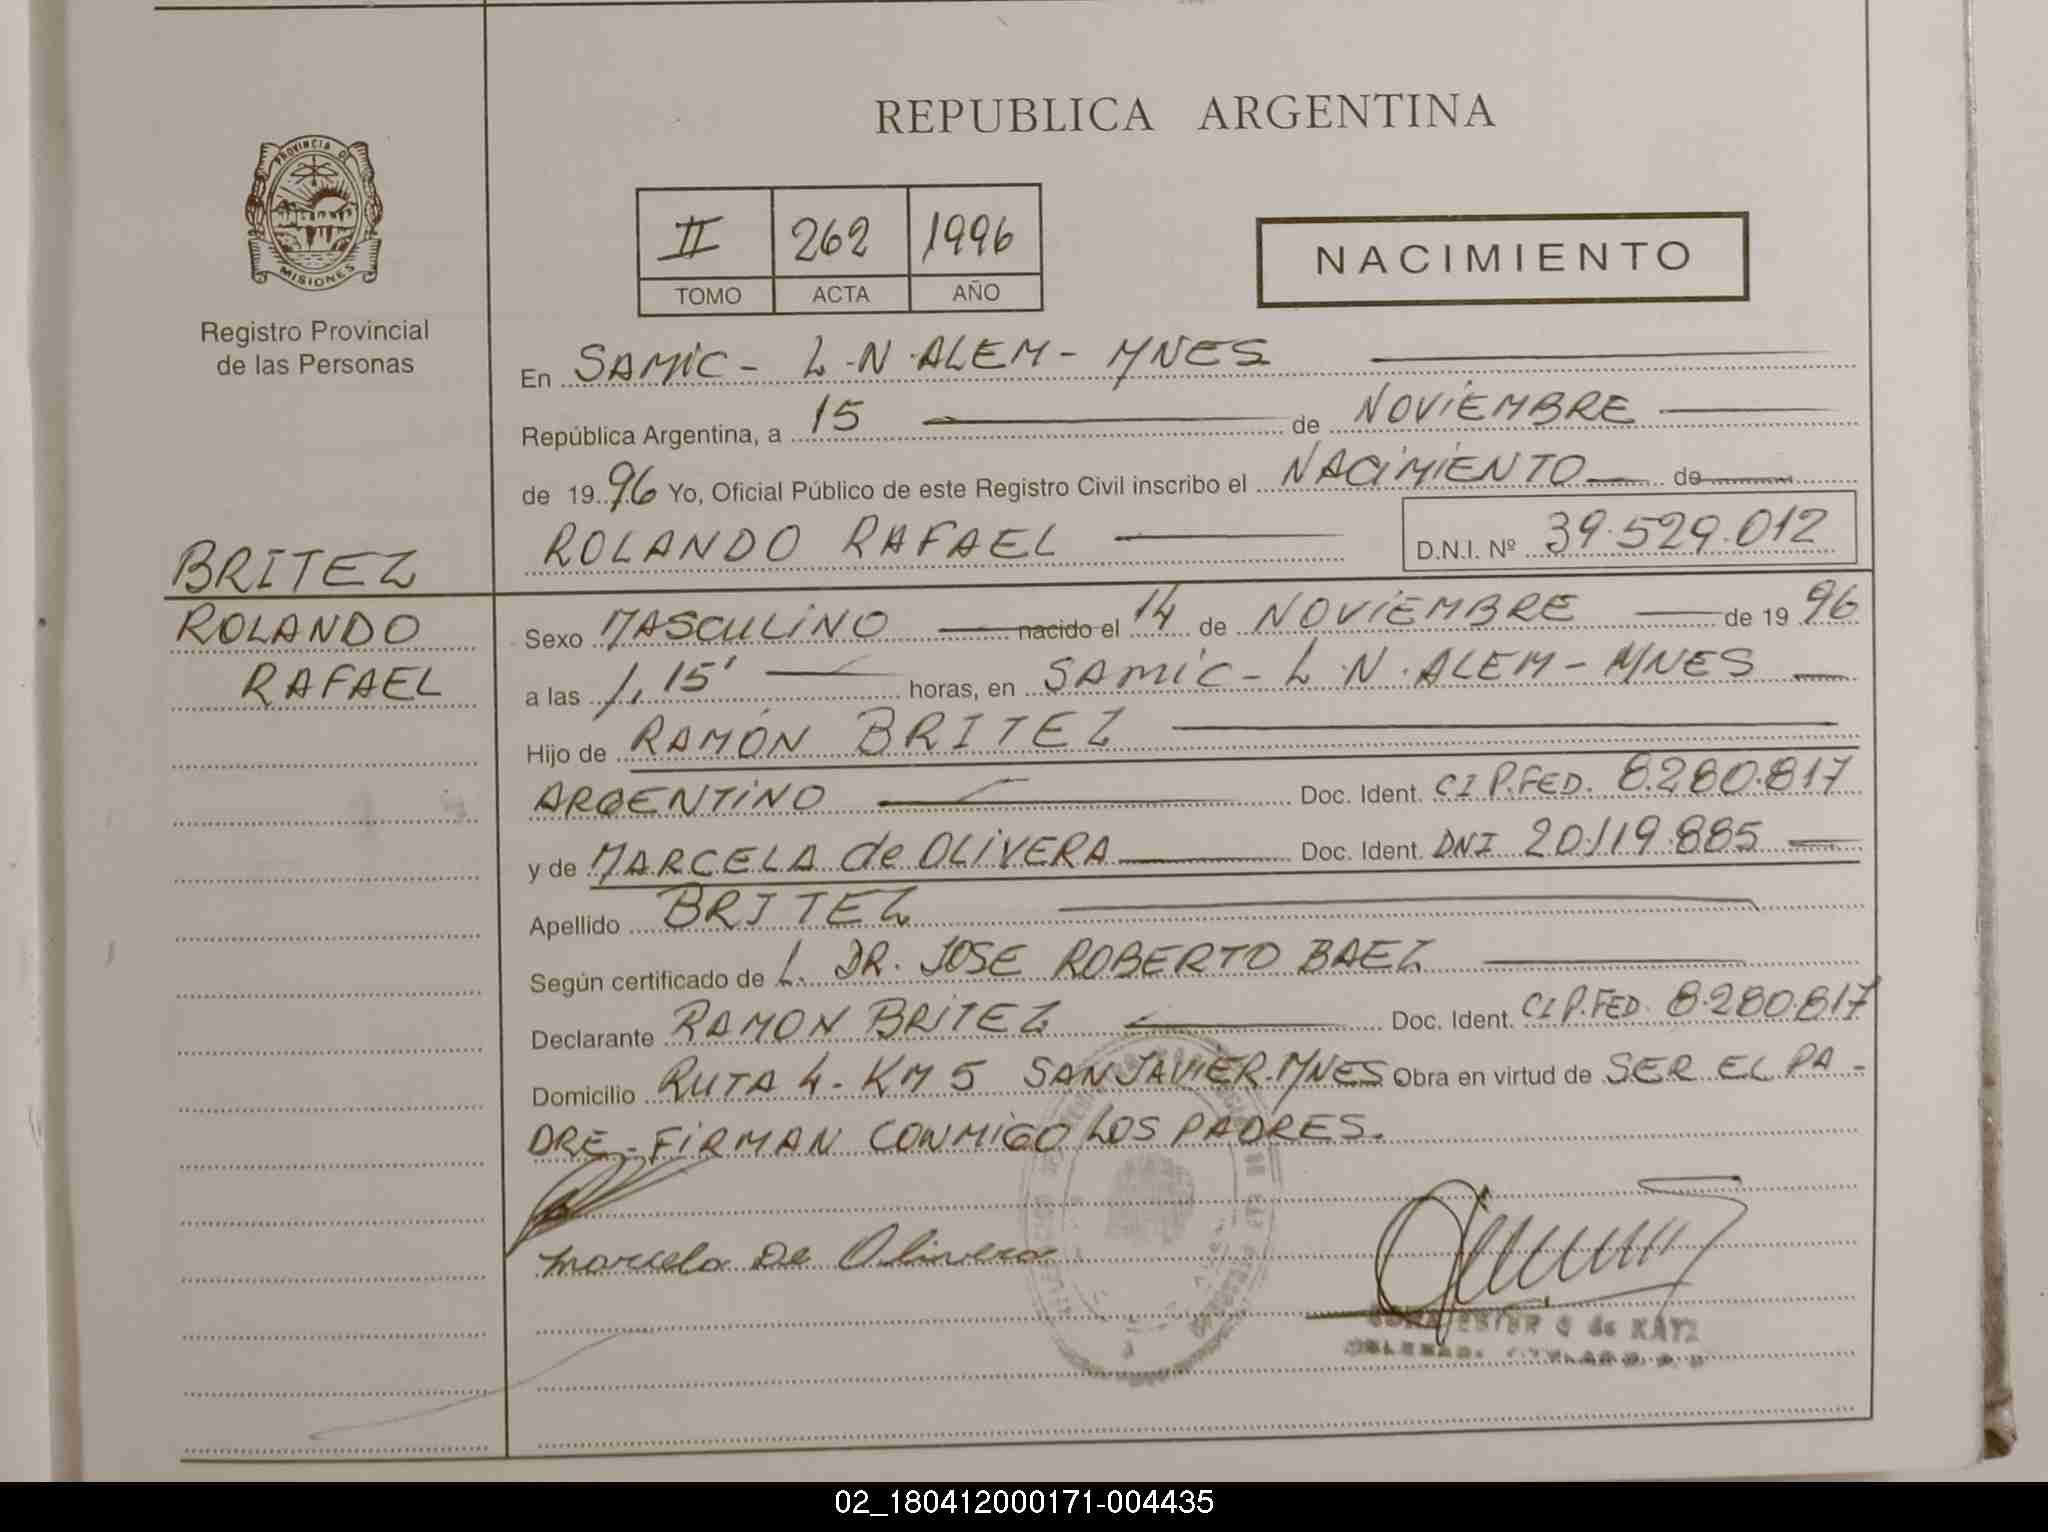 REPUBLICA ARGENTINA
PROVINCIA DE
MISIONES
Registro Provincial
de las Personas
II 262 1996
TOMO ACTA AÑO
NACIMIENTO
En SAMIC - L.N. ALEM - MNES
República Argentina, a 15 de NOVIEMBRE
de 1996 Yo, Oficial Público de este Registro Civil inscribo el NACIMIENTO de
ROLANDO RAFAEL D.N.I. Nº 39.529.012
BRITEZ
ROLANDO
RAFAEL
Sexo MASCULINO nacido el 14 de NOVIEMBRE de 1996
a las 1,15' horas, en SAMIC - L.N. ALEM - MNES
Hijo de RAMÓN BRITEZ
ARGENTINO Doc. Ident. CI P.FED. 8.280.817
y de MARCELA de OLIVERA Doc. Ident. DNI 20.119.885
Apellido BRITEZ
Según certificado de L. DR. JOSE ROBERTO BAEZ
Declarante RAMON BRITEZ Doc. Ident. CI P.FED. 8.280.817
Domicilio RUTA 4 - KM 5 SAN JAVIER-MNES Obra en virtud de SER EL PA-
DRE - FIRMAN CONMIGO LOS PADRES.
Marcela De Olivera
de KATZ
02_180412000171-004435